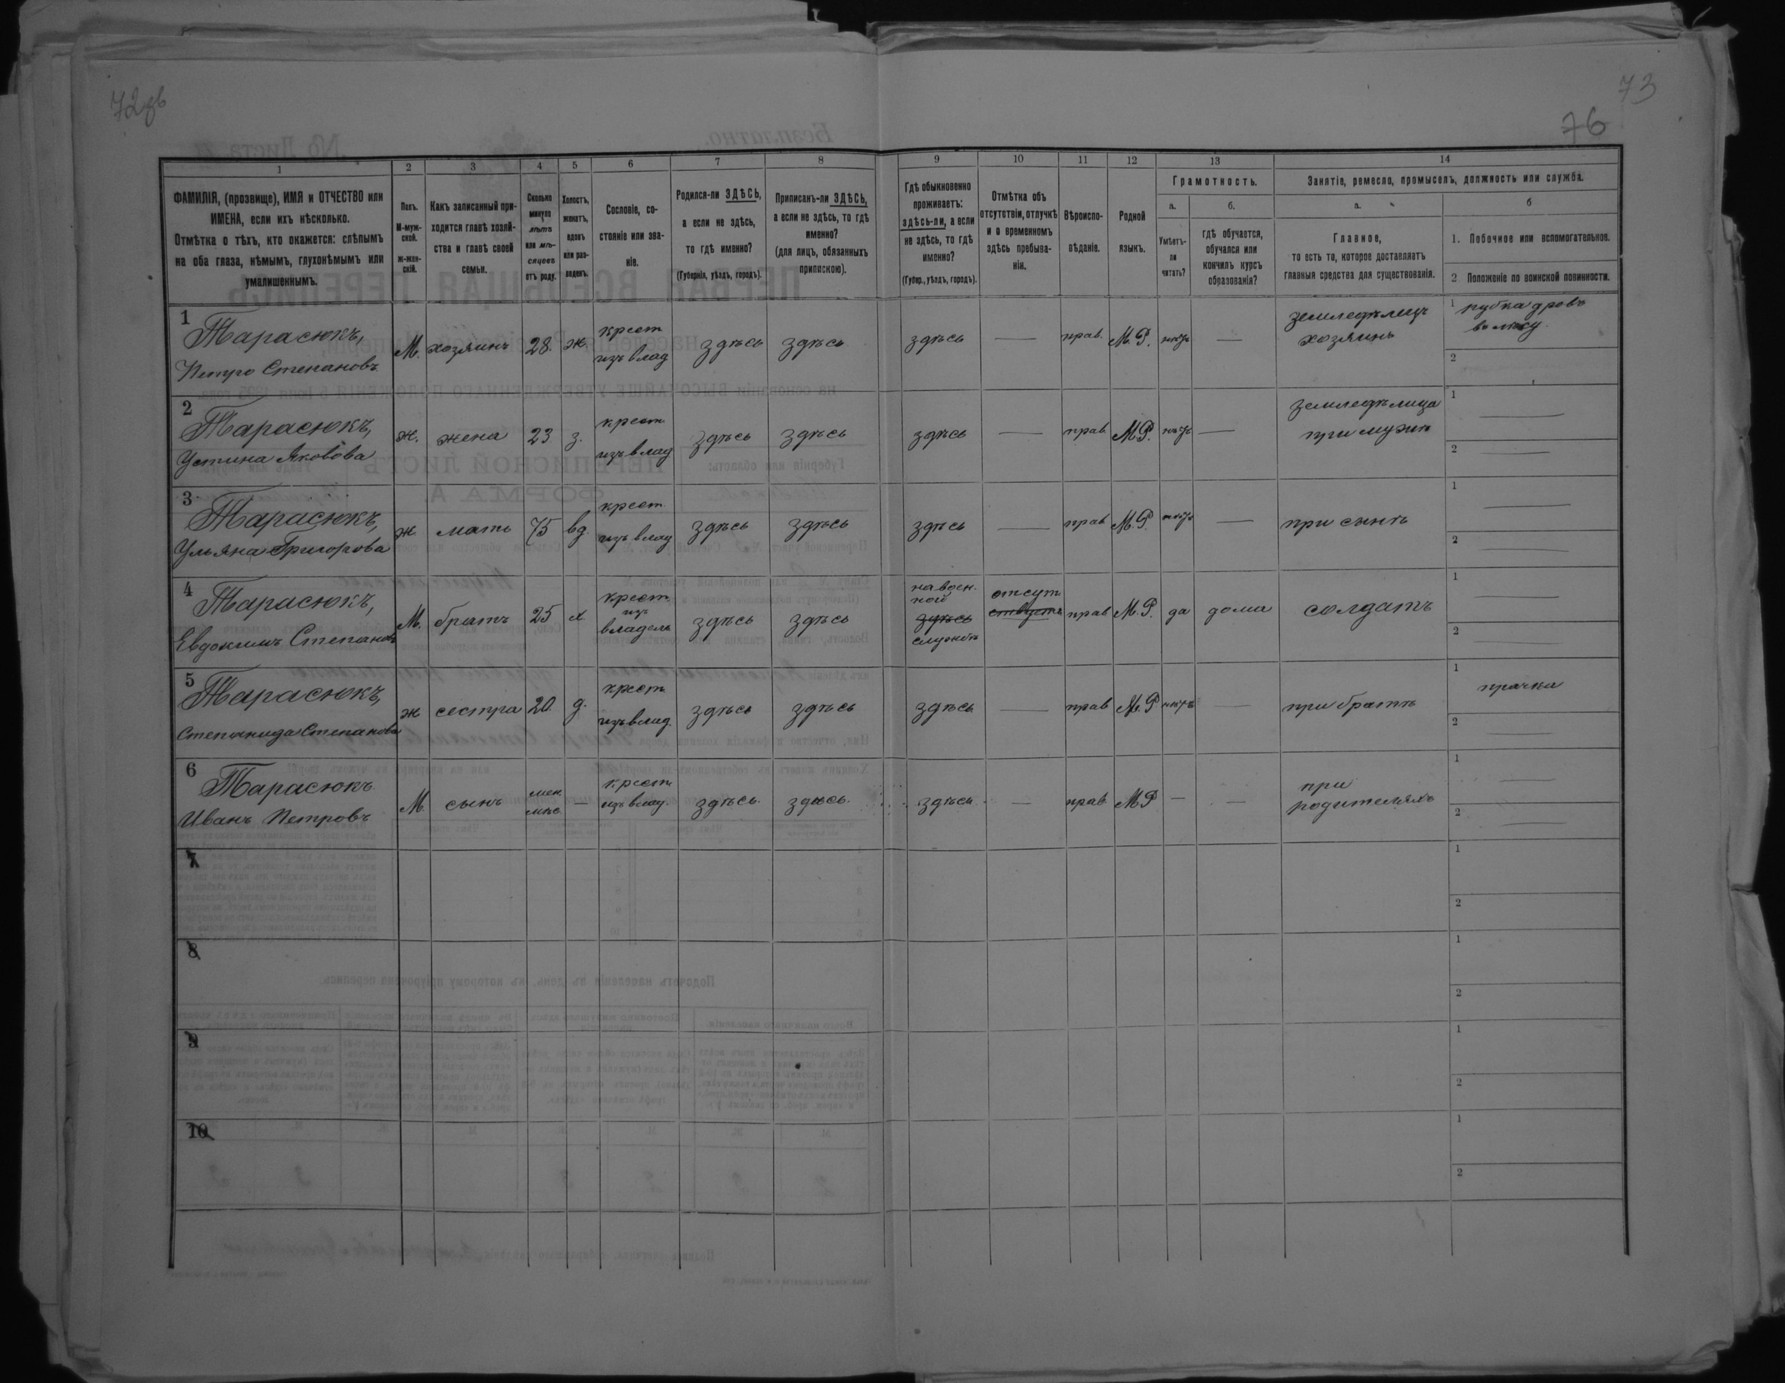 72об
73
76
1
2
3
4
5
6
7
8
9
10
11
12
13
14
ФАМИЛІЯ, (прозвище), ИМЯ и ОТЧЕСТВО или
ИМЕНА, если ихъ нѣсколько.
Отмѣтка о тѣхъ, кто окажется: слѣпымъ
на оба глаза, нѣмымъ, глухонѣмымъ или
умалишеннымъ.
Полъ.
М-муж-
ской.
ж-жен-
скій.
Какъ записанный при-
ходится главѣ хозяй-
ства и главѣ своей
семьи.
Сколько
минуло
лѣтъ
или мѣ-
сяцевъ
отъ роду.
Холостъ,
женатъ,
вдовъ
или раз-
веденъ.
Сословіе, со-
стояніе или зва-
ніе.
Родился-ли ЗДѢСЬ,
а если не здѣсь,
то гдѣ именно?
(Губернія, уѣздъ, городъ).
Приписанъ-ли ЗДѢСЬ,
а если не здѣсь, то гдѣ
именно?
(для лицъ, обязанныхъ
припискою).
Гдѣ обыкновенно
проживаетъ:
здѣсь-ли, а если
не здѣсь, то гдѣ
именно?
(Губер., уѣздъ, городъ).
Отмѣтка объ
отсутствіи, отлучкѣ
и о временномъ
здѣсь пребыва-
ніи.
Вѣроиспо-
вѣданіе.
Родной
языкъ.
Грамотность.
а.
Умѣетъ-
ли
читать?
б.
гдѣ обучается,
обучался или
кончилъ курсъ
образованія?
Занятіе, ремесло, промыселъ, должность или служба.
а.
Главное,
то есть то, которое доставляетъ
главныя средства для существованія.
б
1. Побочное или вспомогательное.
2 Положеніе по воинской повинности.
1
Тарасюкъ,
Петро Степановъ
М. хозяинъ 28. ж
крест
изъ влад
здѣсь здѣсь здѣсь — прав. М.Р. нѣтъ —
земледѣлецъ
хозяинъ
1 рубка дровъ
въ лѣсу.
2
2
Тарасюкъ,
Устина Яковова
ж. жена 23 з.
крест
изъ влад
здѣсь здѣсь здѣсь — прав. М.Р. нѣтъ —
земледѣлица
при мужѣ
1 —
2 —
3
Тарасюкъ,
Ульяна Григорова
ж мать 75 вд.
крест
изъ влад
здѣсь здѣсь здѣсь — прав. М.Р. нѣтъ —
при сынѣ
1 —
2 —
4
Тарасюкъ,
Евдокимъ Степановъ
М. братъ 25 х
крест.
изъ
владель
здѣсь здѣсь
на воен-
ной
здѣсь
службѣ
отсут
ствуетъ
прав М.Р. да дома солдатъ
1 —
2 —
5
Тарасюкъ,
Степанида Степанова
ж сестра 20 д.
крест.
изъ влад.
здѣсь здѣсь здѣсь — прав М.Р нѣтъ —
при братѣ
1 прачка
2 —
6
Тарасюкъ
Иванъ Петровъ
М. сынъ
мен
мѣс
—
крест.
изъ влад.
здѣсь. здѣсь. здѣсь. — прав. М.Р — —
при
родителяхъ
1 —
2 —
7
1
2
8
1
2
9
1
2
10
1
2